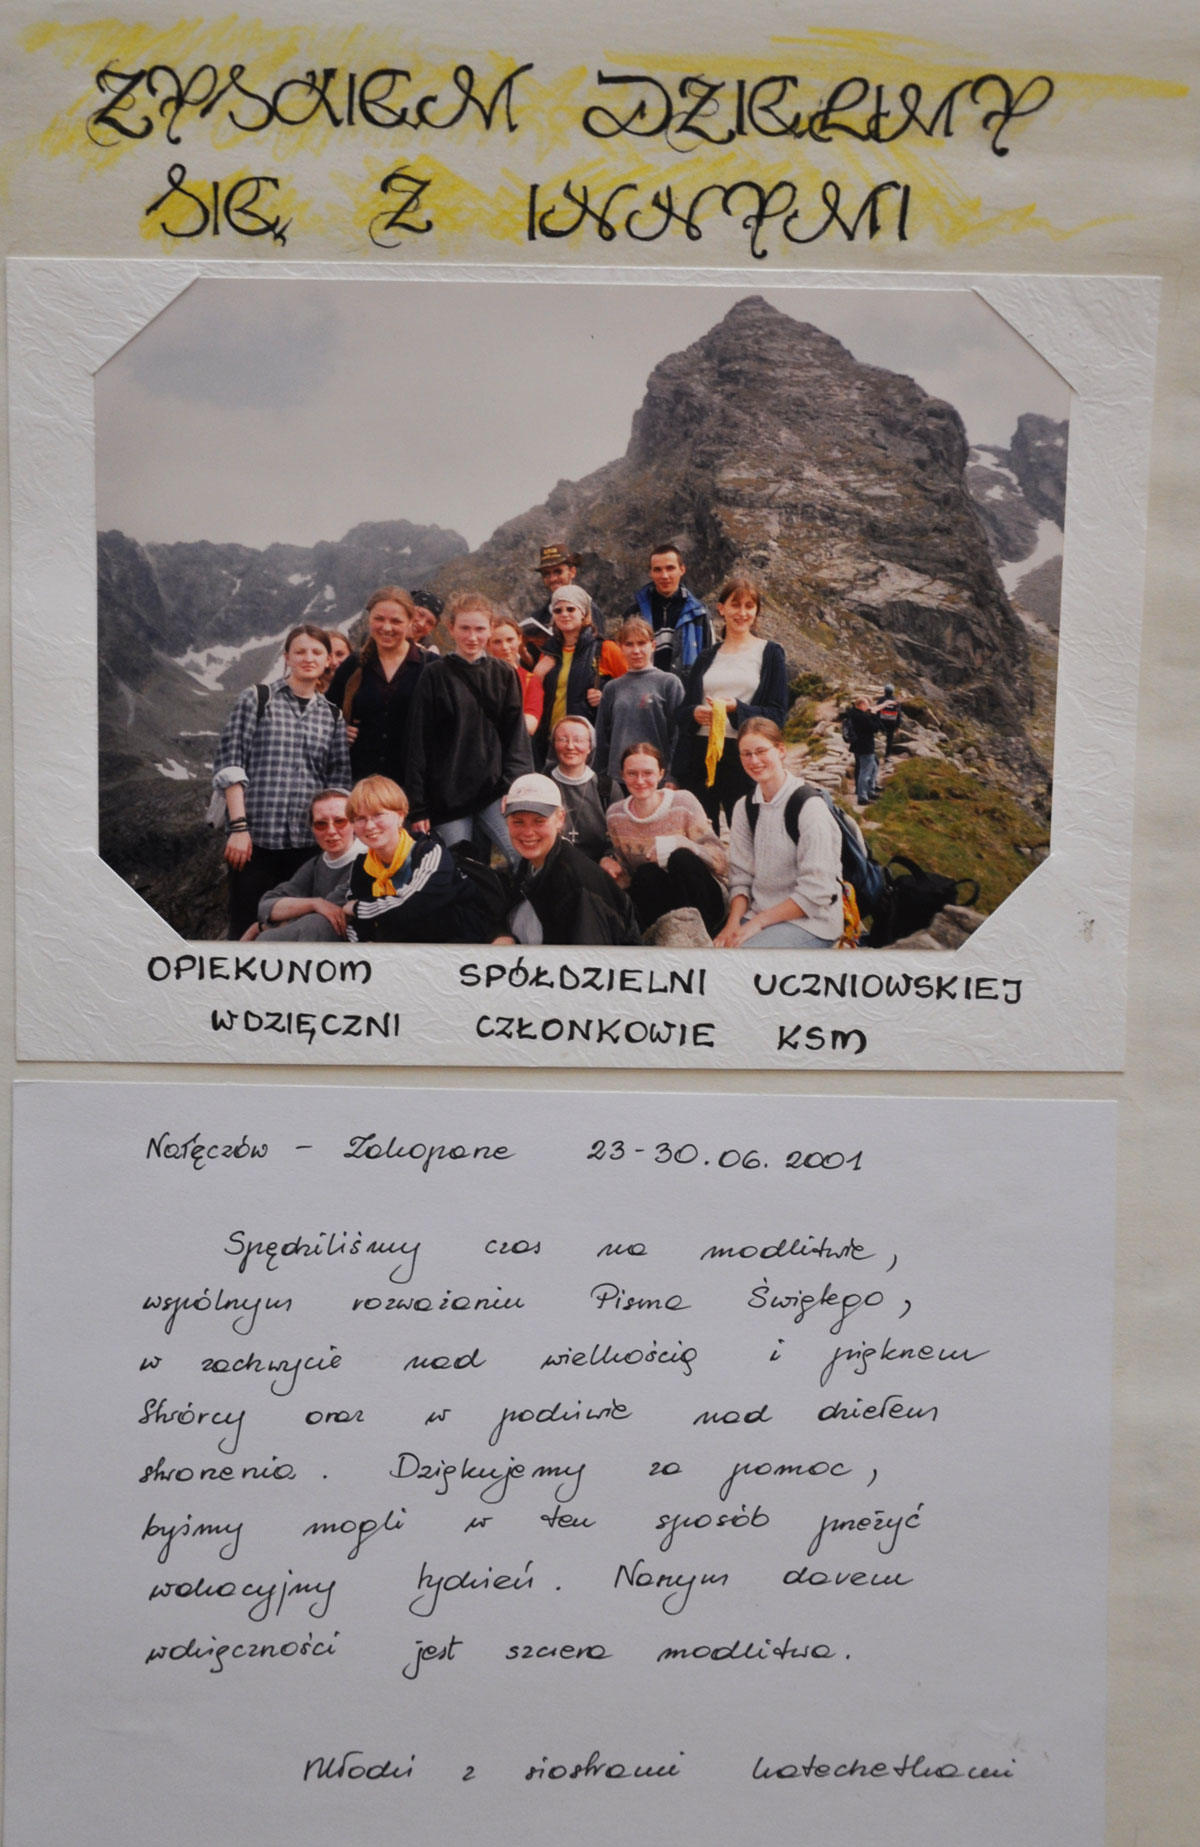 ZYSKIEM DZIELIMY
SIĘ Z INNYMI
OPIEKUNOM SPÓŁDZIELNI UCZNIOWSKIEJ
WDZIĘCZNI CZŁONKOWIE KSM
Nałęczów - Zakopane 23-30.06.2001
Spędziliśmy czas na modlitwie,
wspólnym rozważaniu Pisma Świętego,
w zachwycie nad wielkością i pięknem
Stwórcy oraz w podziwie nad dziełem
stworzenia. Dziękujemy za pomoc,
byśmy mogli w ten sposób przeżyć
wakacyjny tydzień. Naszym darem
wdzięczności jest szczera modlitwa.
Młodzi z siostrami katechetkami